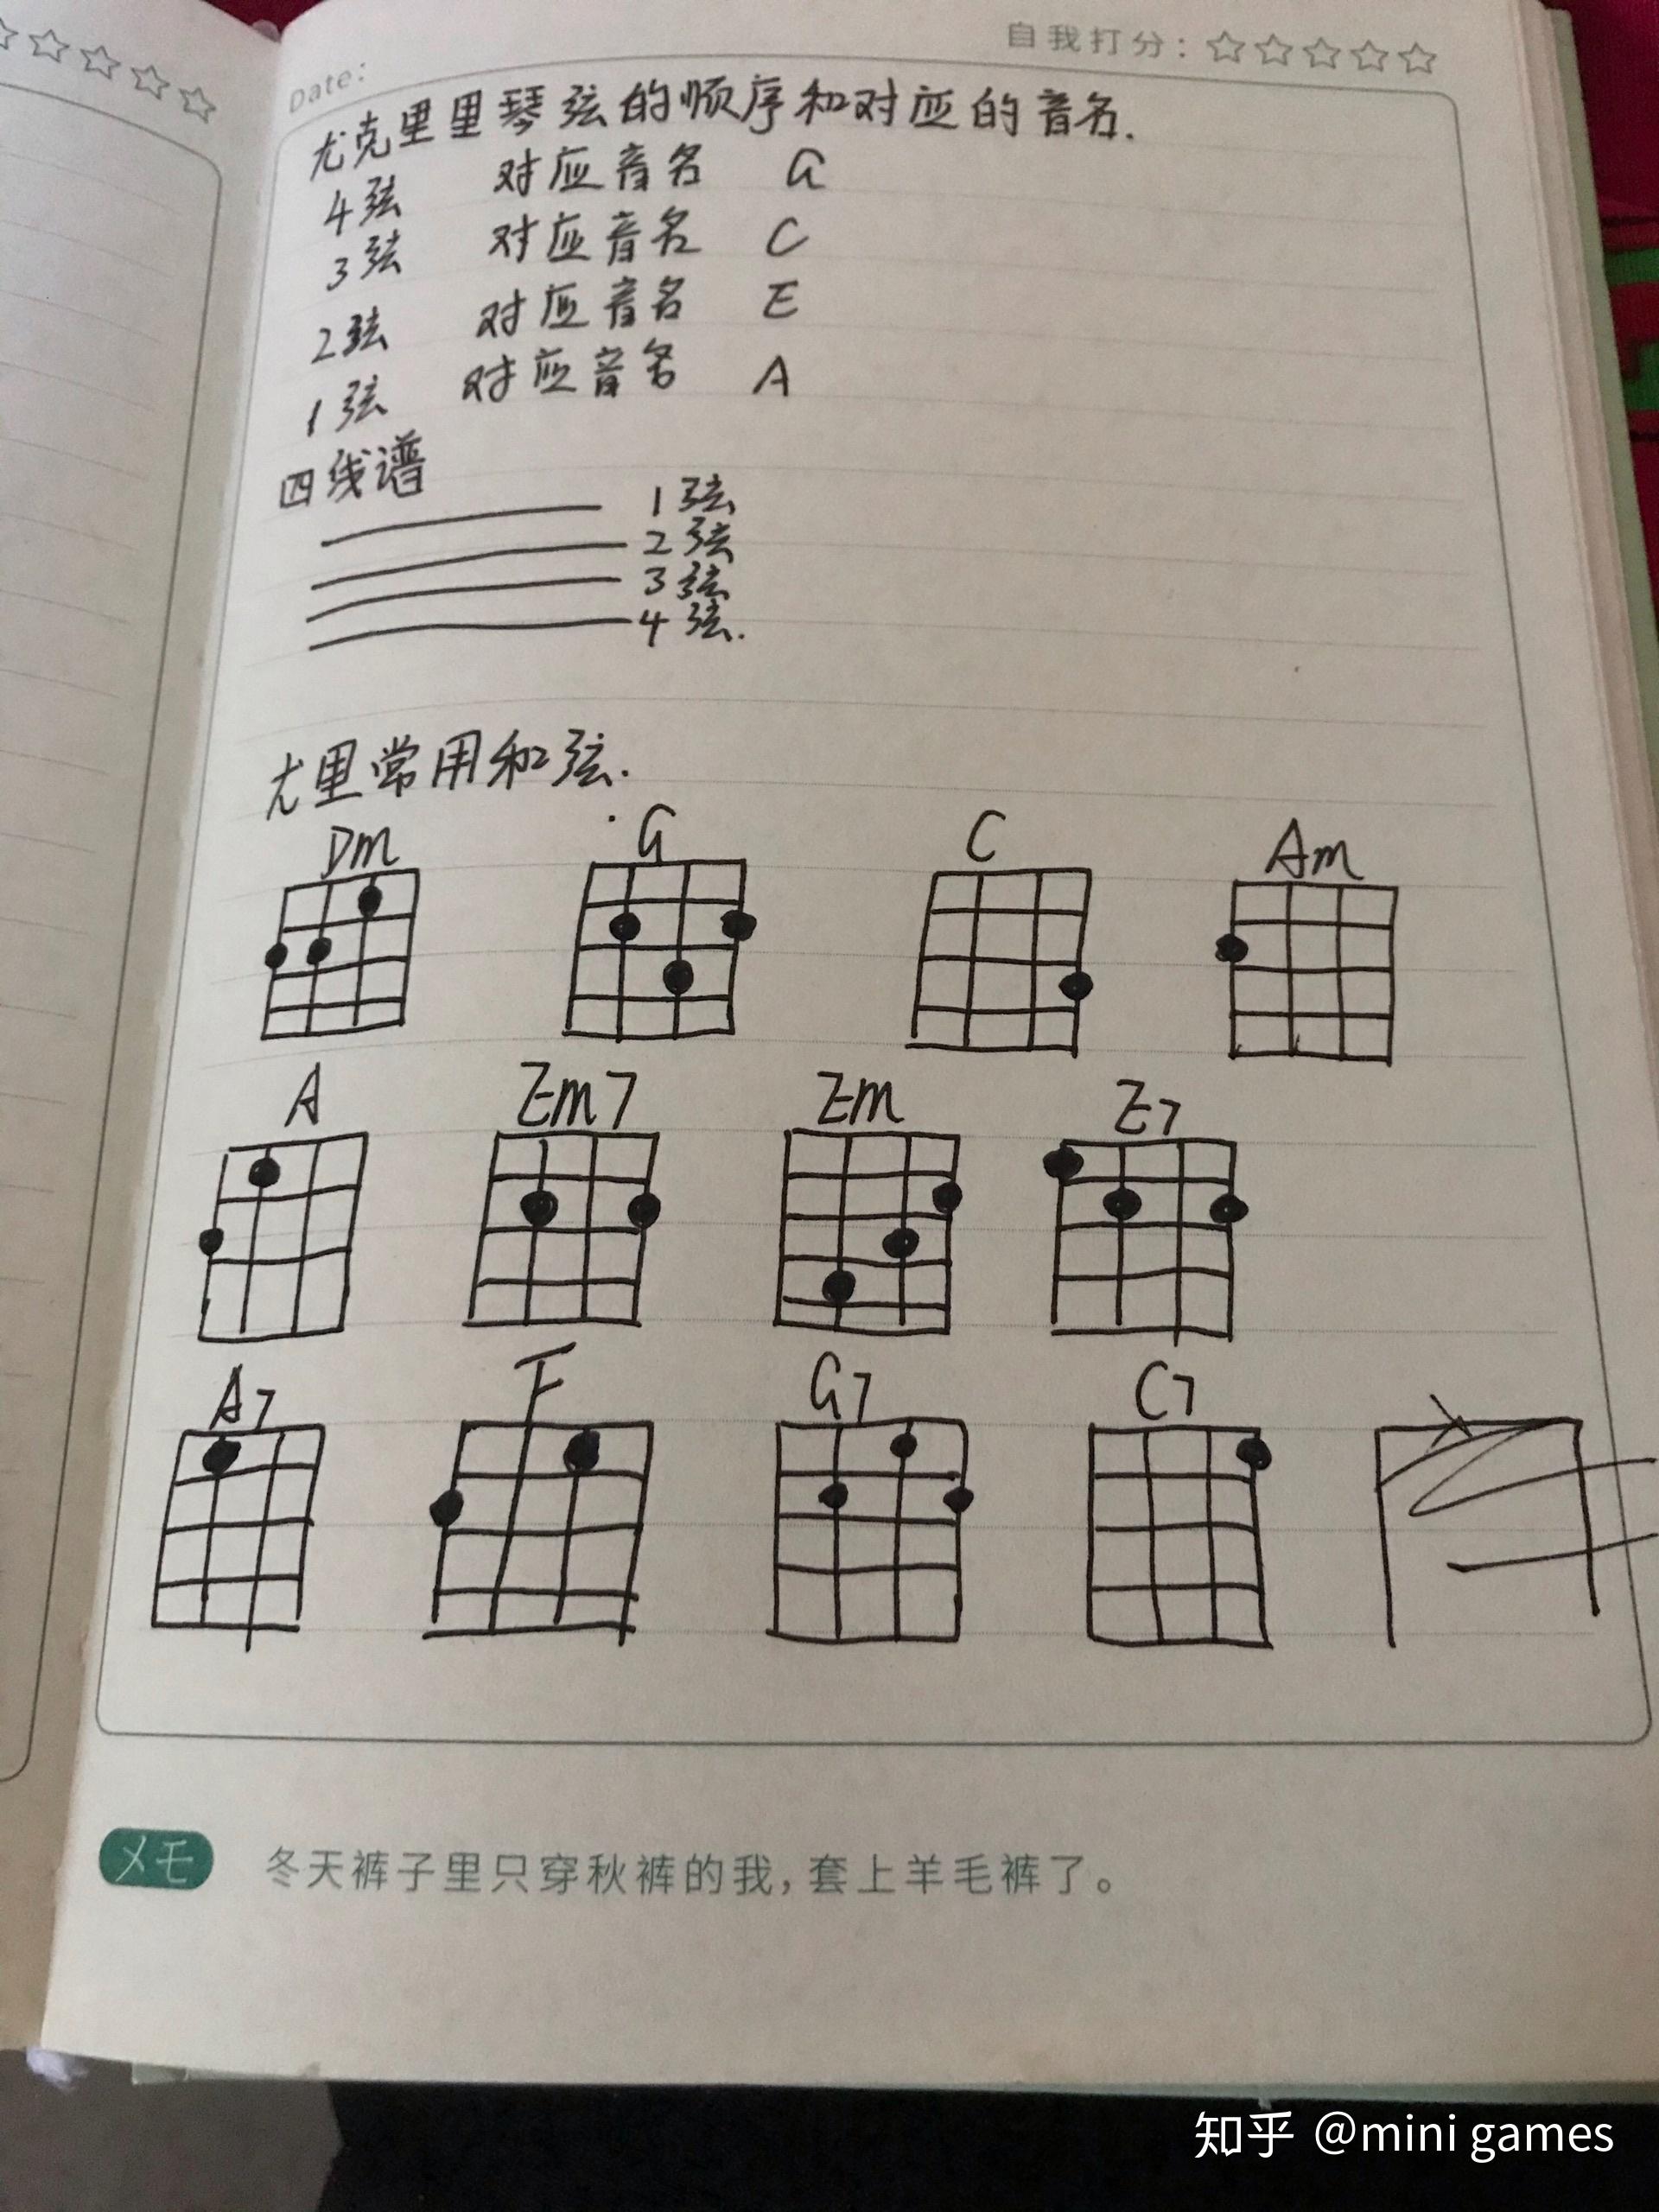 自我打分：☆☆☆☆☆
Date:
尤克里里琴弦的顺序和对应的音名.
4弦 对应音名 G
3弦 对应音名 C
2弦 对应音名 E
1弦 对应音名 A
四线谱
1弦
2弦
3弦
4弦.
尤里常用和弦.
Dm G C Am
A Em7 Em E7
A7 F G7 C7
メモ 冬天裤子里只穿秋裤的我，套上羊毛裤了。
知乎 @mini games